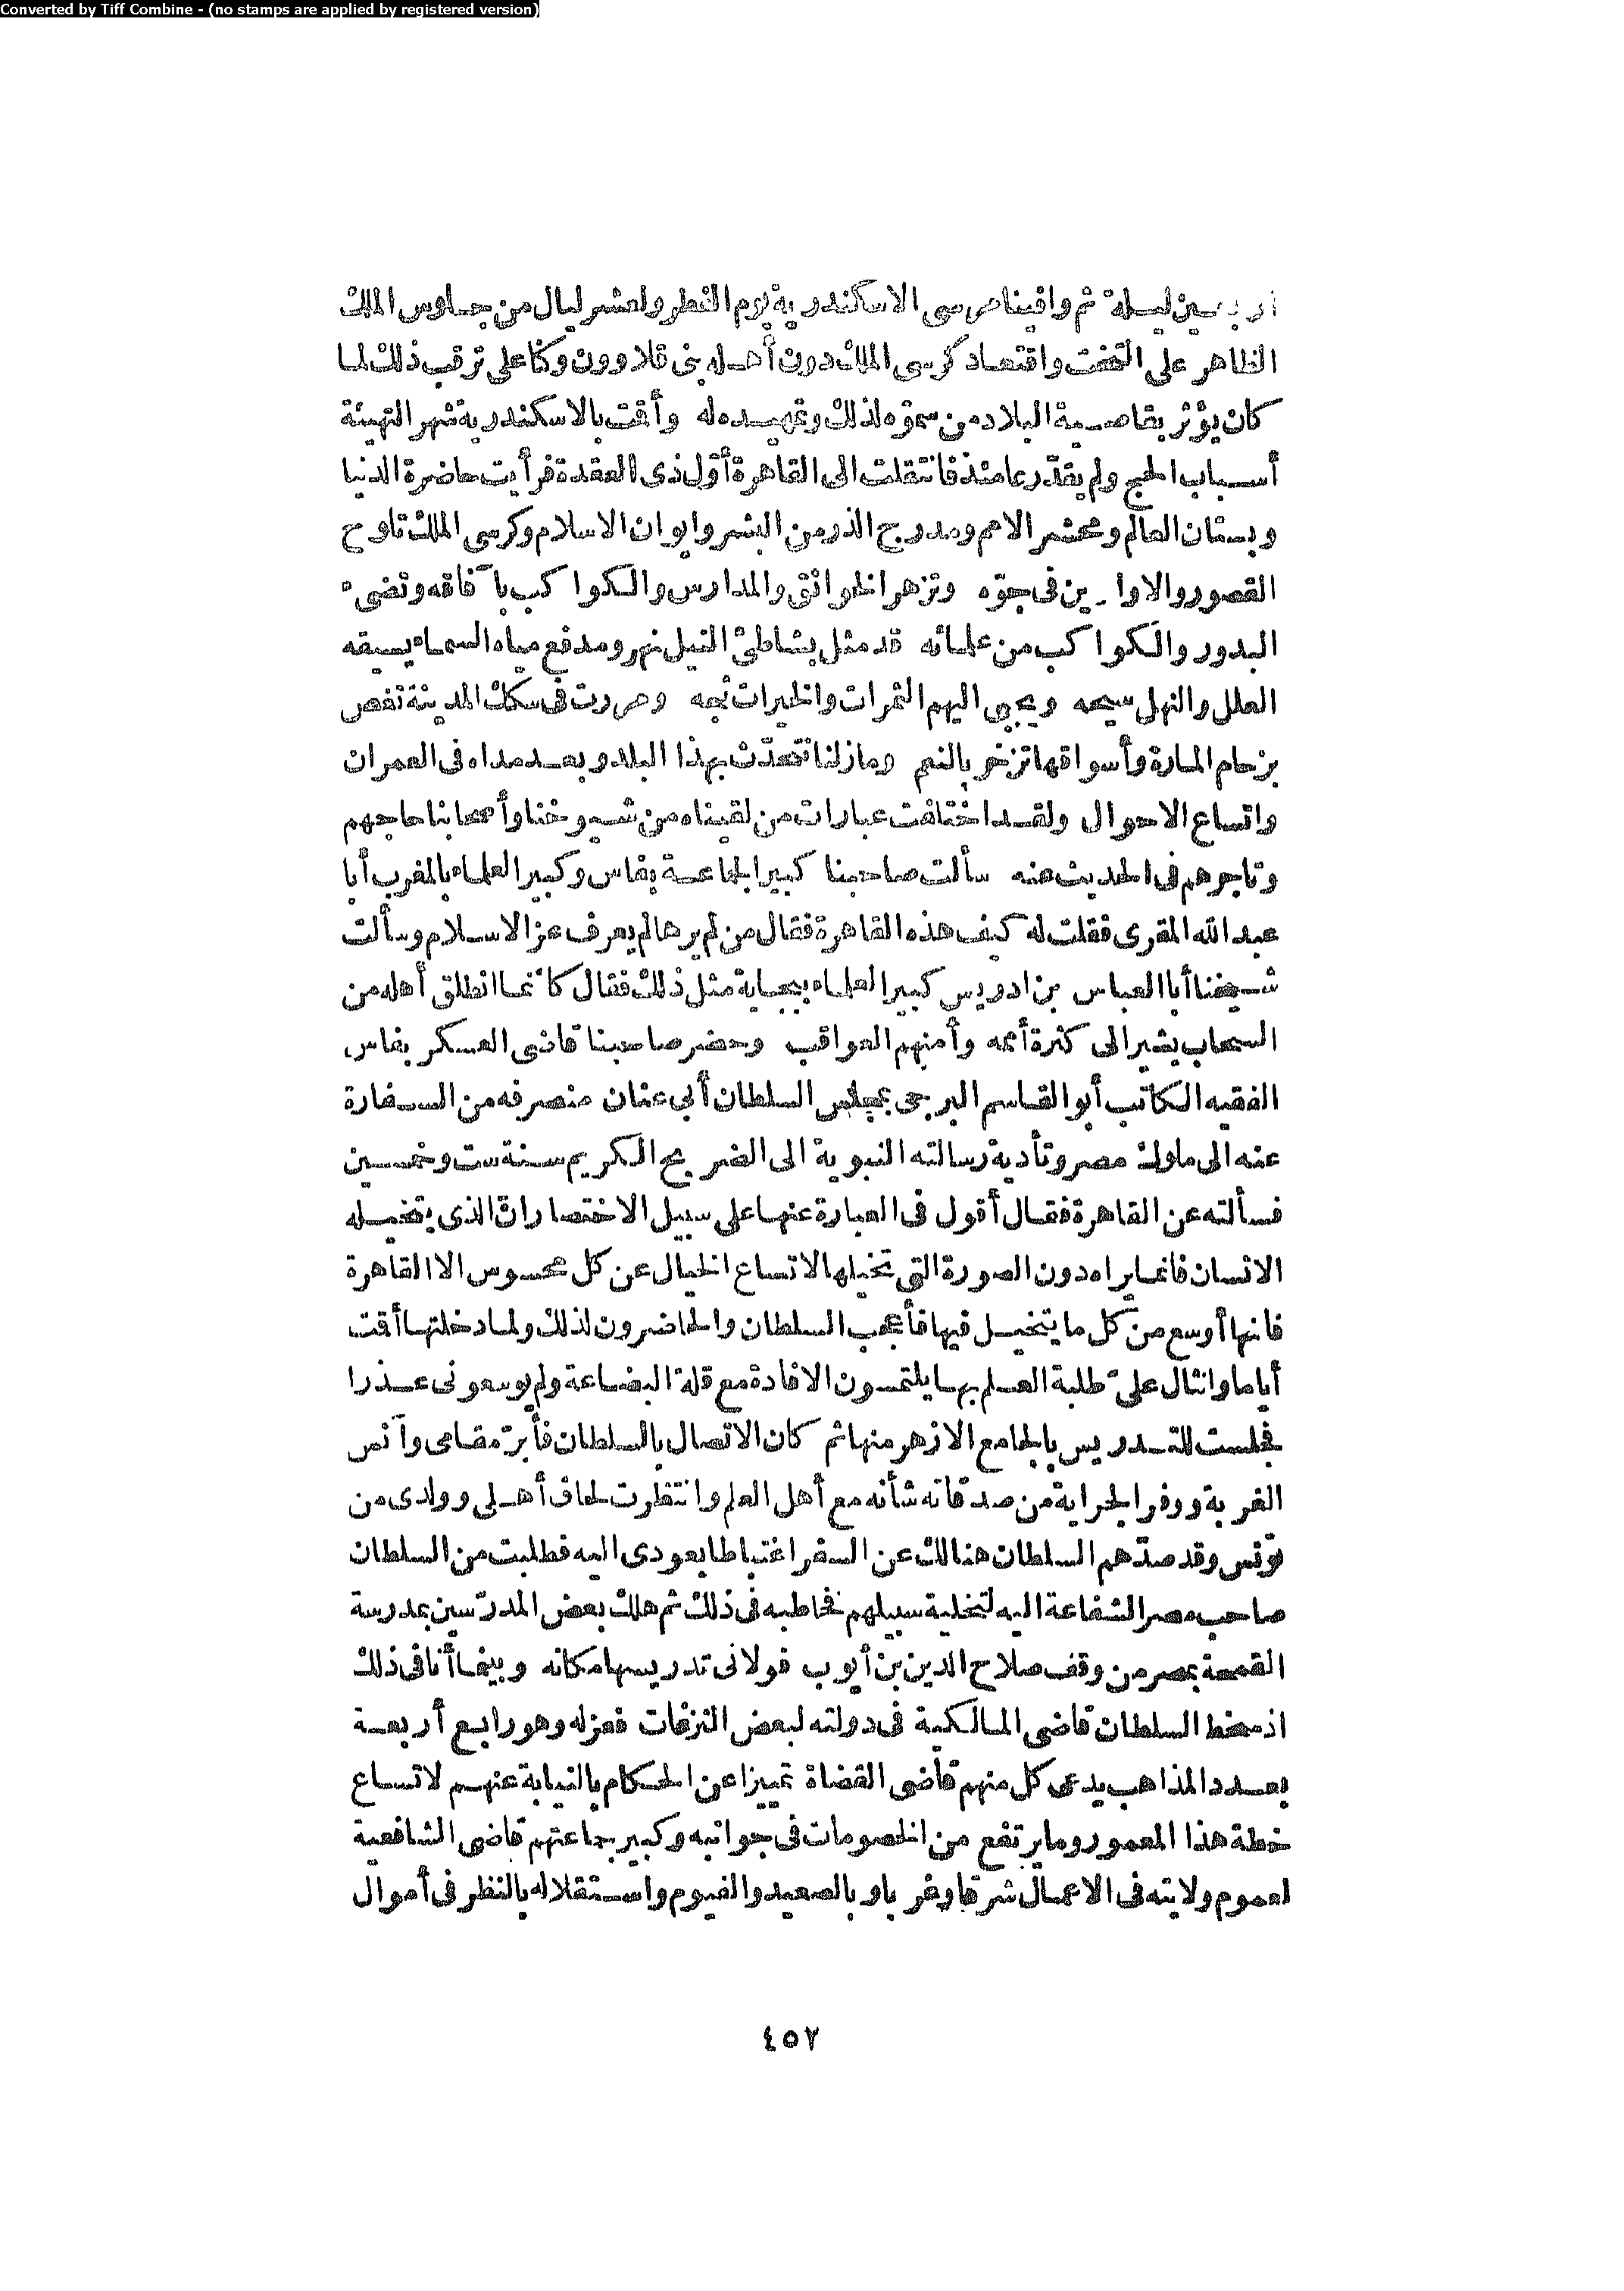 Converted by Tiff Combine - (no stamps are applied by registered version)
أربعين ليلة ثم وافينا مرسى الاسكندرية يوم الفطر ولعشر ليال من جلوس الملك
الظاهر على التخت واقتعاد كرسى الملك دون أهله بنى قلاوون وكنا على ترقب ذلك لما
كان يؤثر بقاصية البلاد من سموّه لذلك وتمهيده له وأقت بالاسكندرية شهر التهيئة
أسباب الحج ولم يقدّر عامئذ فانتقلت الى القاهرة أوّل ذى القعدة فرأيت حاضرة الدنيا
وبستان العالم ومحشر الامم ومدرج الذر من البشر وايوان الاسلام وكرسى الملك تلوح
القصور والاواوين فى جوّه وتزهر الخوانق والمدارس والكواكب بآفاقه وتضىء
البدور والكواكب من علمائه قد مثل بشاطئ النيل نهر ومدفع مياه السماء يسقيه
العلل والنهل سيحه ويجبى اليهم الثمرات والخيرات ثجه ومررت فى سكك المدينة تغص
بزحام المارة وأسواقها تزخر بالنعم ومازلنا نتحدّث بهذا البلد وبعد مداه فى العمران
واتساع الاحوال ولقد اختلفت عبارات من لقيناه من شيوخنا وأصحابنا حاجهم
وتاجرهم فى الحديث عنه سألت صاحبنا كبير الجماعة بفاس وكبير العلماء بالمغرب أبا
عبد الله المقرى فقلت له كيف هذه القاهرة فقال من لم يرها لم يعرف عز الاسلام وسألت
شيخنا أبا العباس بن ادريس كبير العلماء ببجاية مثل ذلك فقال كأنما انطلق أهله من
السحاب يشير الى كثرة أممه وأمنهم العواقب وحضر صاحبنا قاضى العسكر بفاس
الفقيه الكاتب أبو القاسم البرجى بمجلس السلطان أبى عنان منصرفه من السفارة
عنه الى ملوك مصر وتأدية رسالته النبوية الى الضريح الكريم سنة ست وخمسين
فسألته عن القاهرة فقال أقول فى العبارة عنها على سبيل الاختصار ان الذى يتخيله
الانسان فانما يراه دون الصورة التى تخيلها لاتساع الخيال عن كل محسوس الا القاهرة
فانها أوسع من كل ما يتخيل فيها فأعجب السلطان والحاضرون لذلك ولما دخلتها أقت
أياما وانثال علىّ طلبة العلم بها يلتمسون الافادة مع قلة البضاعة ولم يوسعونى عذرا
فجلست للتدريس بالجامع الازهر منها ثم كان الاتصال بالسلطان فأبرّ مقامى وآنس
الغربة ووفر الجراية من صدقاته شأنه مع أهل العلم وانتظرت لحاق أهلى وولدى من
تونس وقد صدّهم السلطان هنالك عن السفر اغتباطا بعودى اليه فطلبت من السلطان
صاحب مصر الشفاعة اليه لتخلية سبيلهم فخاطبه فى ذلك ثم هلك بعض المدرّسين بمدرسة
القمحة بمصر من وقف صلاح الدين بن أيوب فولانى تدريسها مكانه وبينما أنا فى ذلك
اذ سخط السلطان قاضى المالكية فى دولته لبعض النزغات فعزله وهو رابع أربعة
بعدد المذاهب يدعى كل منهم قاضى القضاة تمييزا عن الحكام بالنيابة عنهم لاتساع
خطة هذا المعمور وما يرتفع من الخصومات فى جوانبه وكبير جماعتهم قاضى الشافعية
لعموم ولايته فى الاعمال شرقا وغربا وبالصعيد والفيوم واستقلاله بالنظر فى أموال
٤٥٢